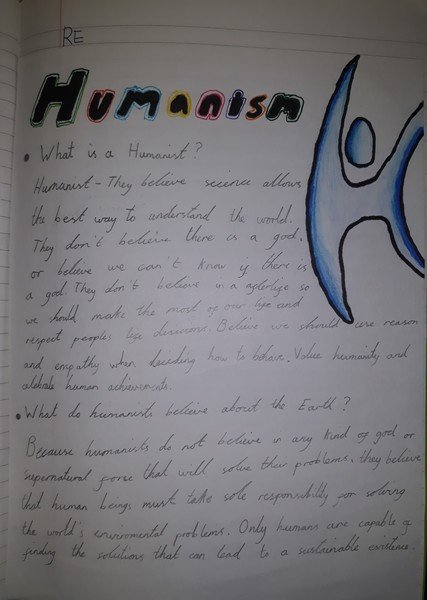 RE
Humanism
• What is a Humanist?
Humanist - They believe science allows
the best way to understand the world.
They don't believe there is a god,
or believe we can't know if there is
a god. They don't believe in a afterlife so
we should make the most of our life and
respect peoples life decisions. Believe we should use reason
and empathy when deciding how to behave. Value humanity and
celebrate human achievements.
• What do humanists believe about the Earth?
Because humanists do not believe in any kind of god or
supernatural force that will solve their problems, they believe
that human beings must take sole responsibility for solving
the world's enviromental problems. Only humans are capable of
finding the solutions that can lead to a sustainable existence.